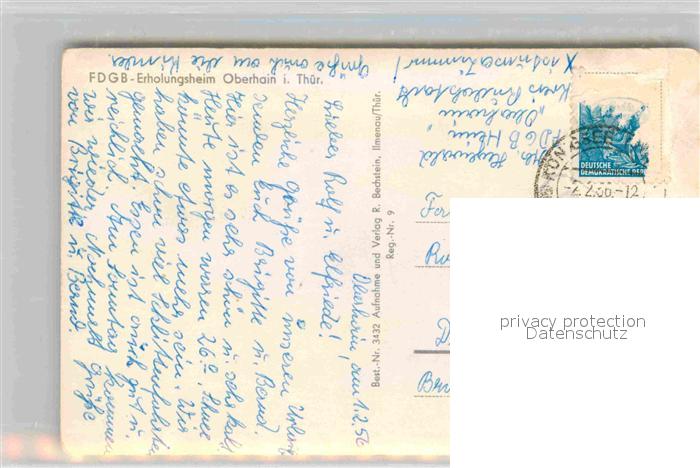 FDGB-Erholungsheim Oberhain i. Thür.
Oberhain, am 1.2.56
Lieber Rolf u. Elfriede!
Herzliche Grüße von unserem Urlaub
senden Euch Brigitte u. Bernd.
Hier ist es sehr schön u. sehr kalt.
Heute morgen waren 26°. Schnee
könnte etwas mehr sein. Wir
haben schon viel Schlittenfahrten
gemacht. Essen ist auch gut u.
reichlich. Am Sonntag kommen
wir wieder. Nochmals Grüße
von Brigitte u. Bernd.
Grüße auch an die Kinder.
Best.-Nr. 3432 Aufnahme und Verlag R. Bechstein, Ilmenau/Thür.
Reg.-Nr. 9
FDGB Heim
Oberhain
DEUTSCHE
DEMOKRATISCHE REP
-2.2.56.-12
privacy protection
Datenschutz